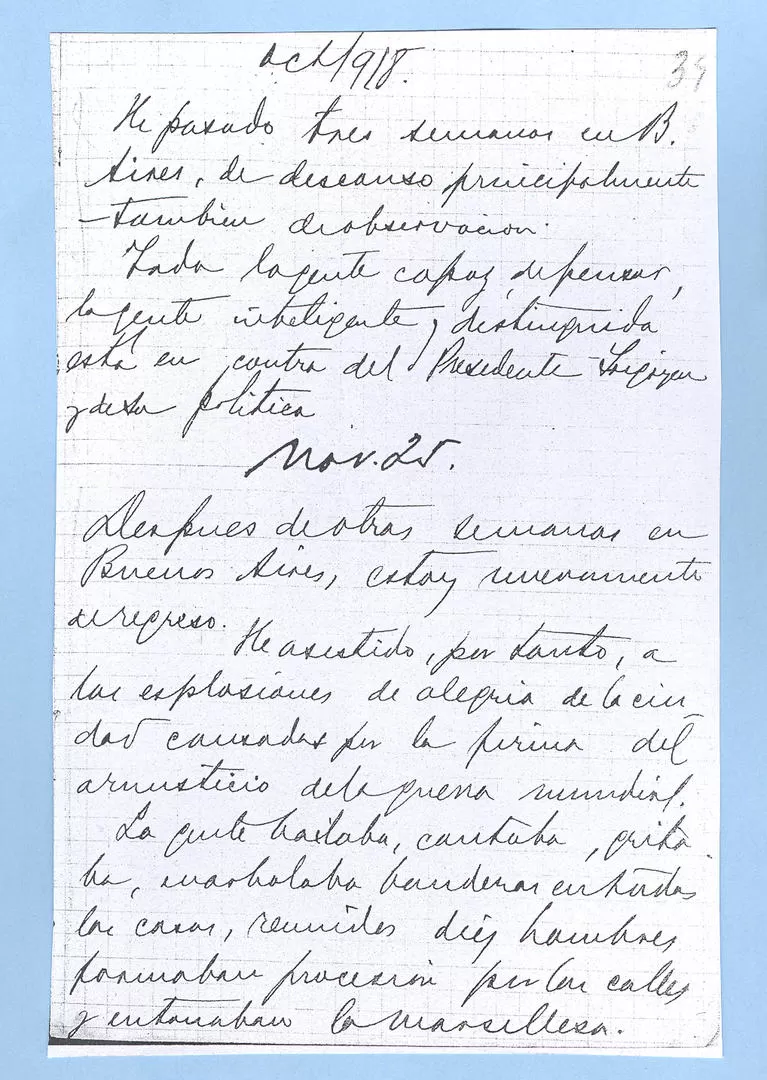 Oct/918.
34
He pasado tres semanas en B.
Aires, de descanso principalmente
– tambien de observacion.
Toda la gente capaz de pensar,
la gente inteligente y distinguida
está en contra del Presidente Irigoyen
y de su politica
Nov. 25.
Despues de otras semanas en
Buenos Aires, estoy nuevamente
de regreso.
He asistido, por tanto, a
las esplosiones de alegria de la ciu
dad causadas por la firma del
armisticio de la guerra mundial.
La gente bailaba, cantaba, grita
ba, enarbolaba banderas en todas
las casas, reunidos diez hombres
formaban procesion por las calles
y entonaban la Marsellesa.